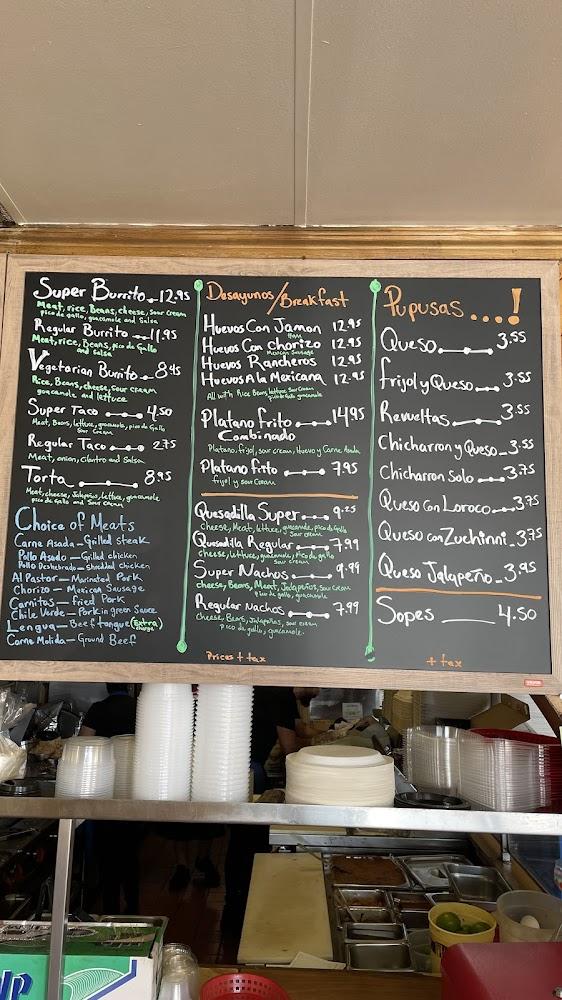 Super Burrito 12.95
Meat, rice, Beans, cheese, sour cream
pico de gallo, guacamole and Salsa
Regular Burrito 11.95
Meat, rice, Beans, pico de Gallo
and salsa
Vegetarian Burrito 8.45
Rice, Beans, cheese, sour cream
guacamole and lettuce
Super Taco 4.50
Meat, Beans, lettuce, guacamole, pico de Gallo
sour cream
Regular Taco 2.75
Meat, onion, cilantro and Salsa
Torta 8.95
Meat, cheese, Jalapeños, lettuce, guacamole
pico de Gallo and sour cream
Choice of Meats
Carne Asada — Grilled steak
Pollo Asado — Grilled chicken
Pollo Deshebrado — shredded chicken
Al Pastor — Marinated Pork
Chorizo — Mexican Sausage
Carnitas — fried Pork
Chile Verde — Pork in green Sauce
Lengua — Beef tongue (Extra charge)
Carne Molida — Ground Beef
Desayunos/Breakfast
Huevos Con Jamon 12.95
Ham
Huevos Con chorizo 12.95
Mexican Sausage
Huevos Rancheros 12.95
Huevos A la Mexicana 12.95
All with Rice Beans, lettuce, sour cream
pico de gallo guacamole
Platano frito 14.95
Combinado
Platano, frijol, sour cream, Huevo y Carne Asada
Platano frito 7.95
frijol y sour cream
Quesadilla Super 9.25
cheese, Meat, lettuce, guacamole, pico de gallo
sour cream
Quesadilla Regular 7.99
cheese, lettuce, guacamole, pico de gallo
sour cream
Super Nachos 9.99
cheese, Beans, Meat, Jalapeños, sour cream
pico de gallo, guacamole
Regular Nachos 7.99
Cheese, Beans, Jalapeños, sour cream
pico de gallo, guacamole.
Prices + tax
Pupusas....!
Queso 3.55
frijol y Queso 3.55
Revueltas 3.55
Chicharron y Queso 3.55
Chicharron Solo 3.75
Queso Con Loroco 3.75
Queso con Zuchinni 3.75
Queso Jalapeño 3.95
Sopes 4.50
+ tax